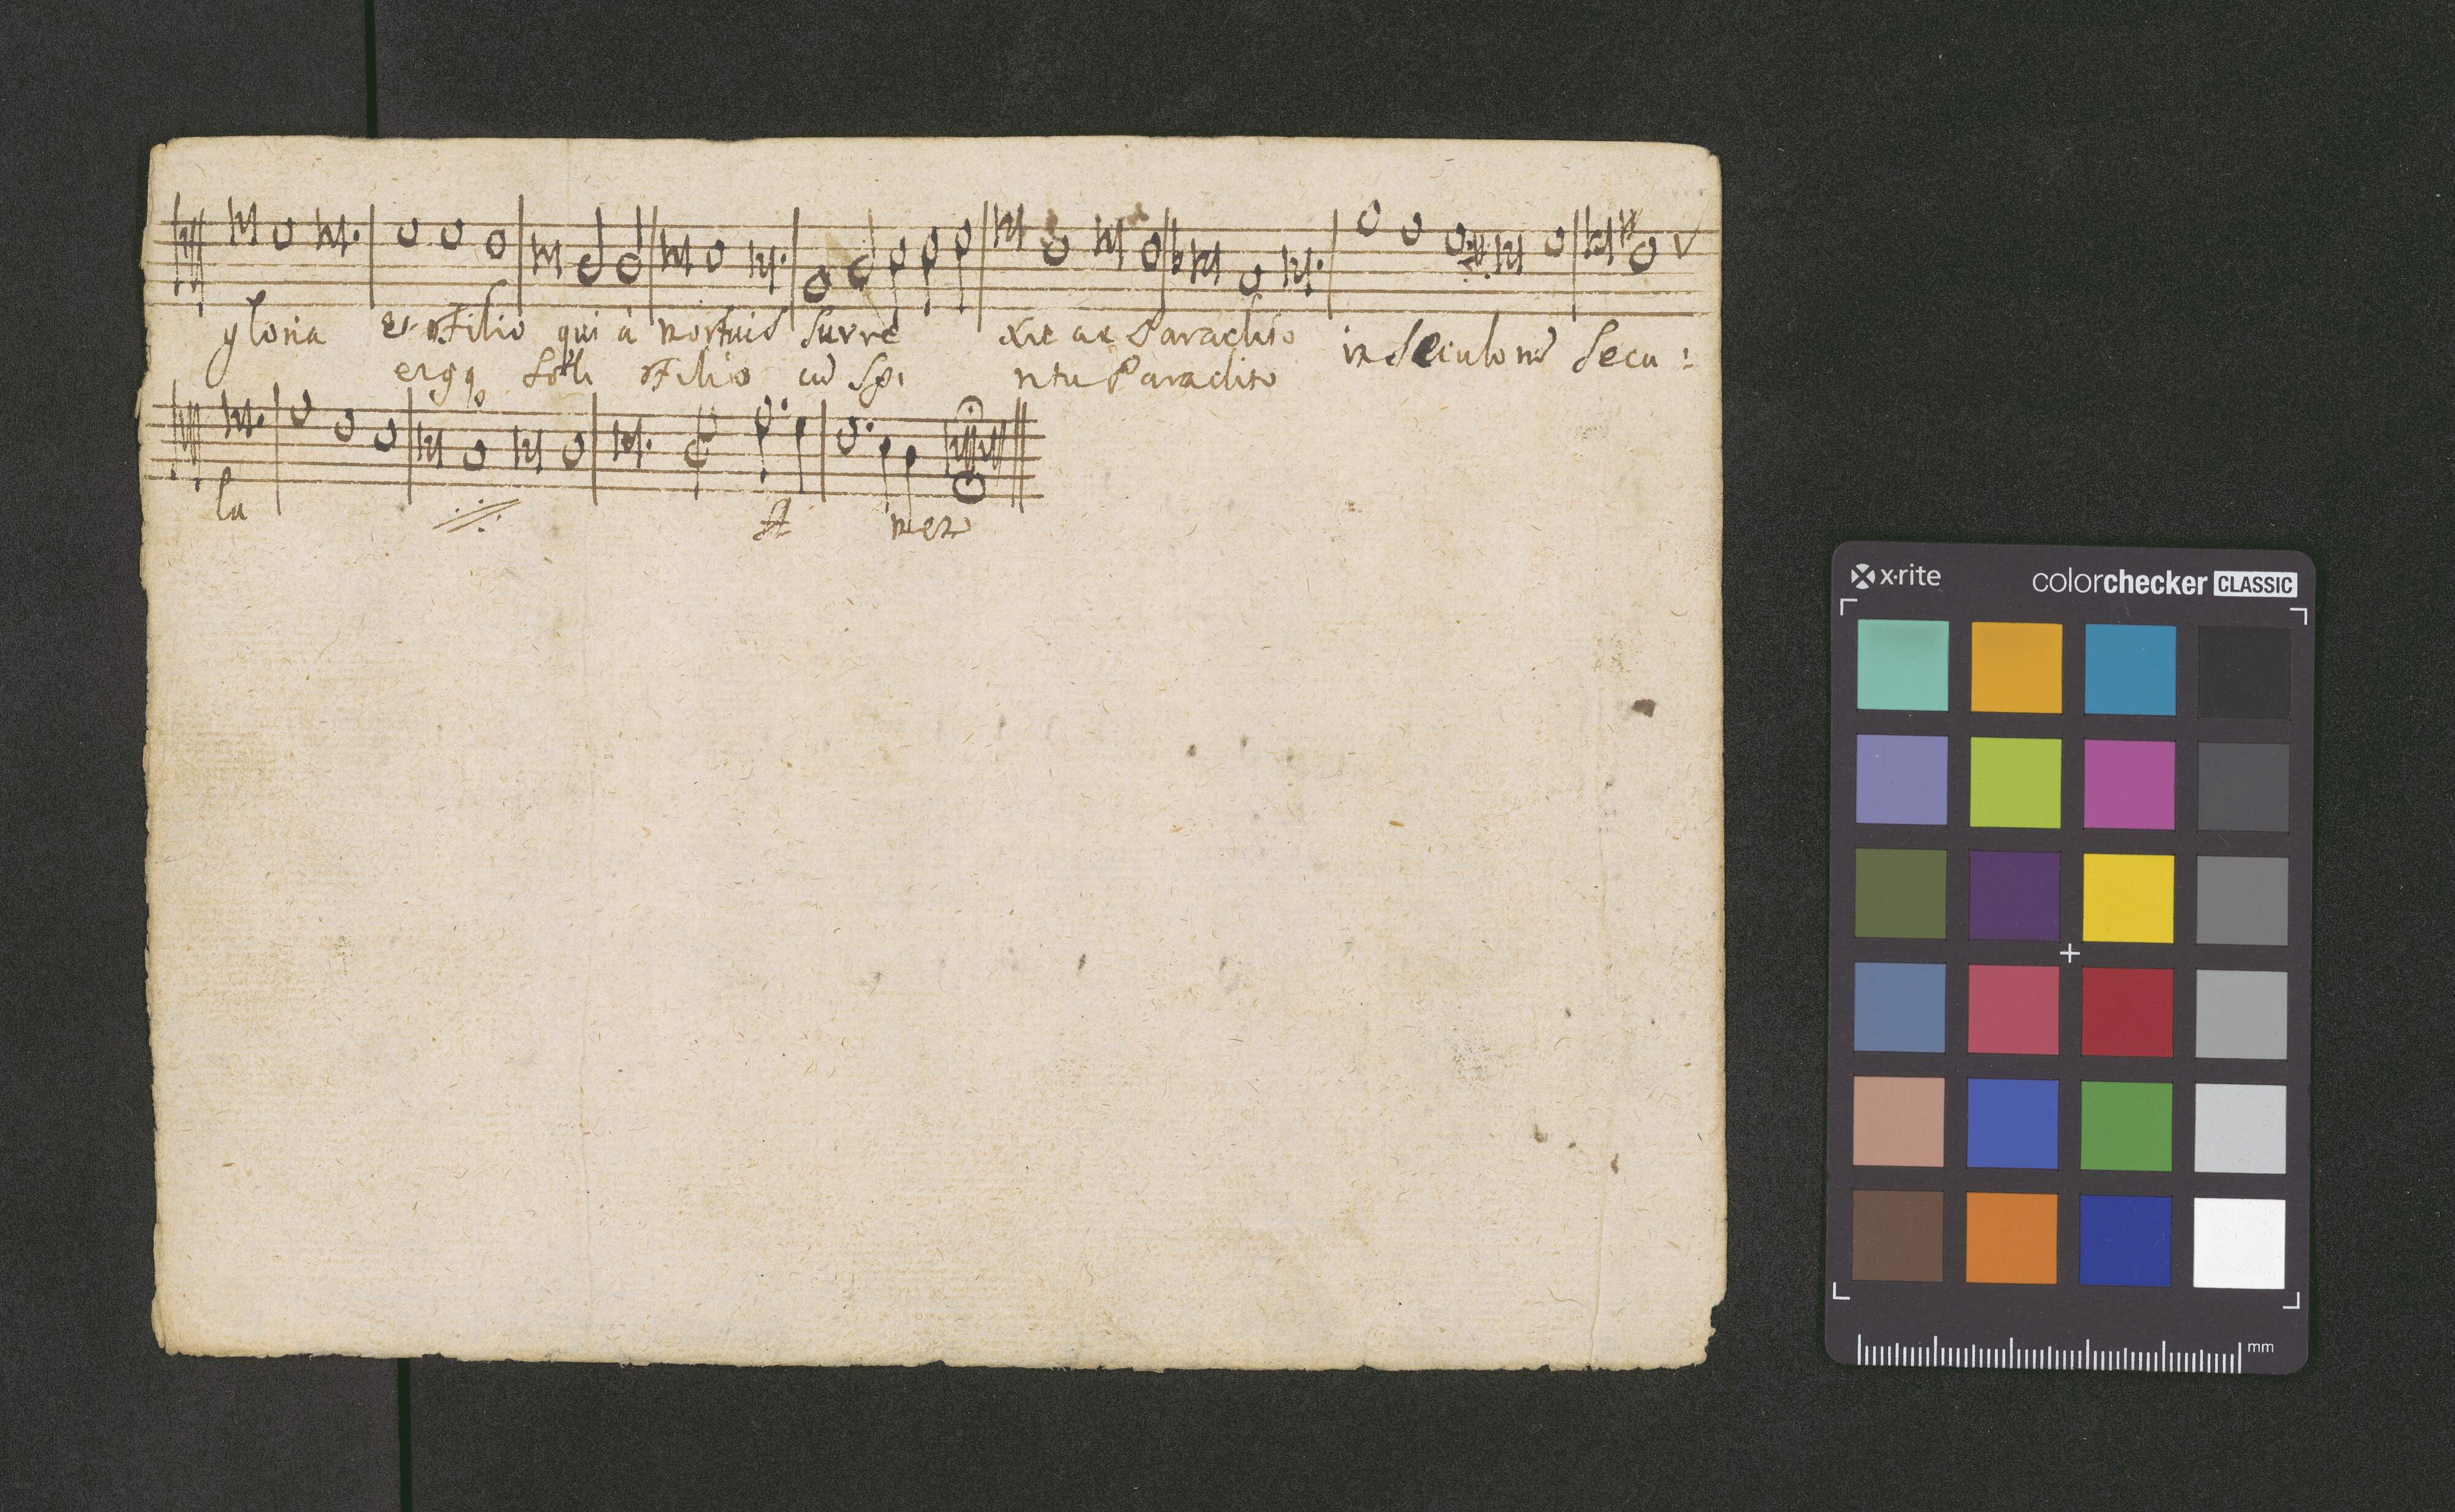 gloria et Filio qui à mortuis surre xit ac Paraclito in seculorū secu:
ergq soli Filio cū Spi ritu Paraclito
la A men
x·rite colorchecker CLASSIC
mm